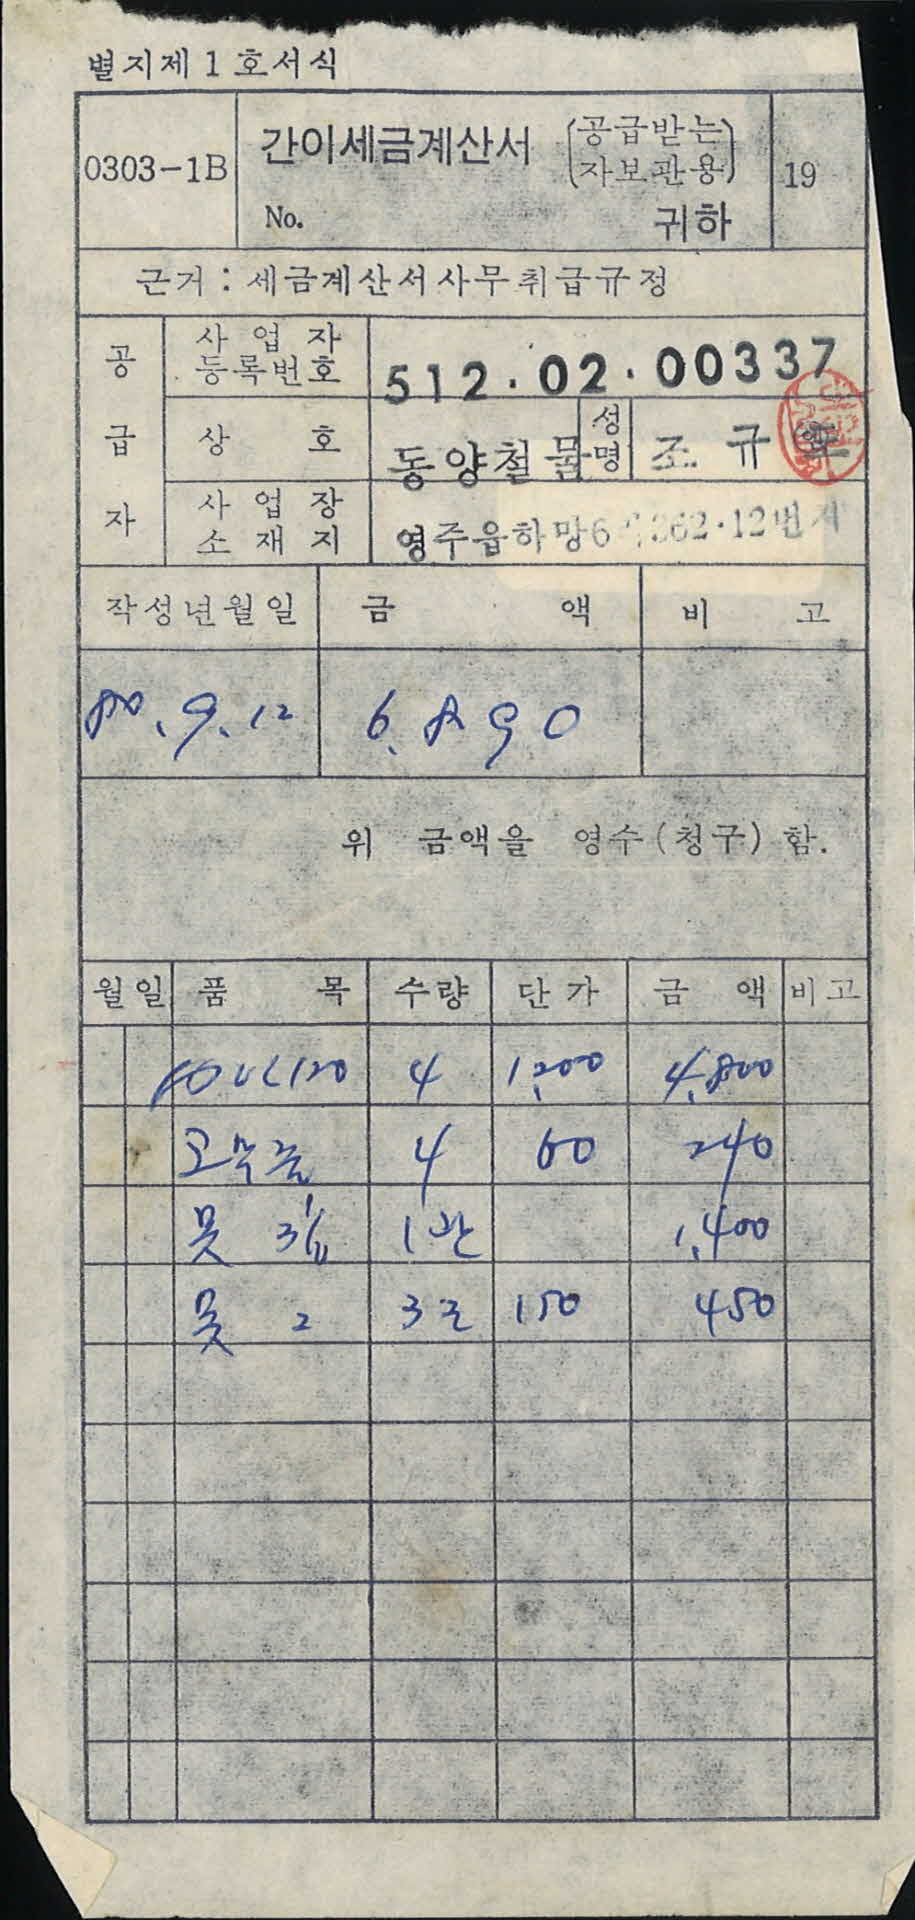 별지제 1 호서식
0303-1B
간이세금계산서 (공급받는 자보관용)
19
No. 귀하
근거 : 세금계산서사무취급규정
공급자
사업자등록번호 512.02.00337
상호 동양철물 성명 조규
사업장소재지 영주읍하망6 362·12번지
작성년월일 금액 비고
80.9.12 6.890
위 금액을 영수(청구)함.
월일 품목 수량 단가 금액 비고
120 4 1,200 4,800
고무줄 4 60 240
못 3 1관 1,400
못 2 3근 150 450